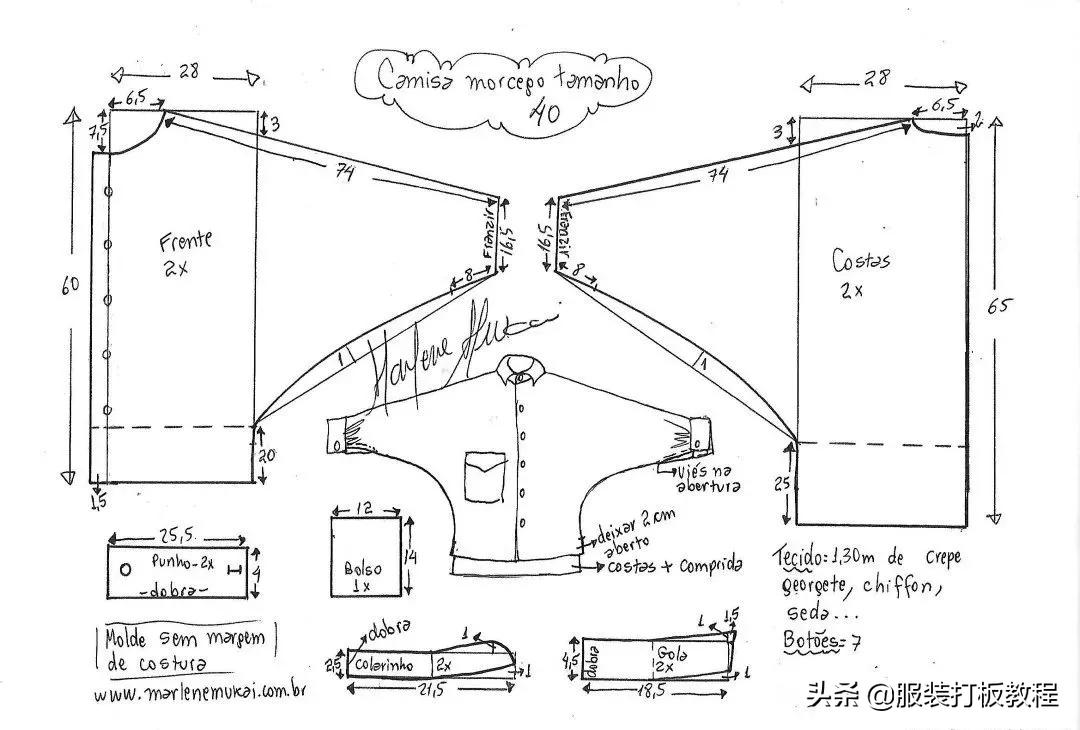 Camisa morcego tamanho
40
28
6,5
7,5
3
74
60
Frente
2x
Franzir
16,5
8
1
20
1,5
28
6,5
2
3
74
Costas
2x
Franzir
16,5
8
1
65
25
Marlene Mukai
viés na
abertura
deixar 2 cm
aberto
costas + comprida
25,5
Punho-2x
-dobra-
4
12
Bolso
1x
14
Tecido: 1,30m de crepe
georgete, chiffon,
seda...
Botões= 7
Molde sem margem
de costura
www.marlenemukai.com.br
dobra
1
2,5
Colarinho
2x
1
21,5
1
1,5
4,5
dobra
Gola
2x
1
18,5
头条 @服装打板教程